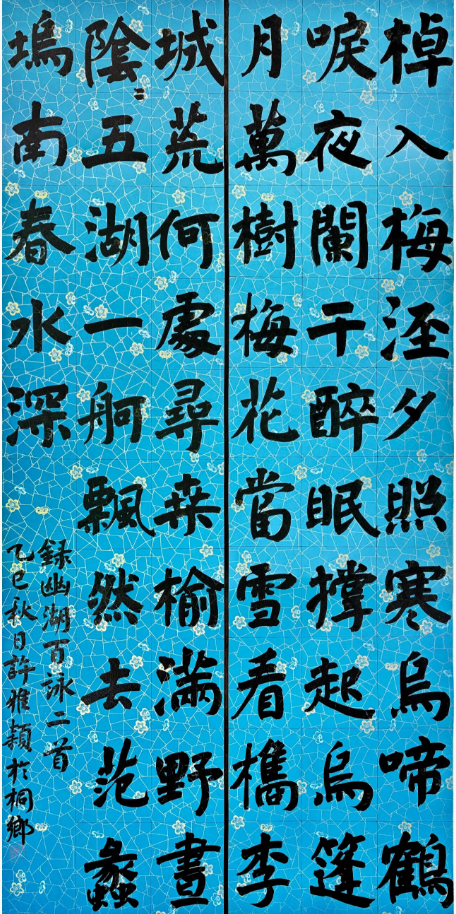 棹入梅涇夕照寒烏啼鶴
唳夜闌干醉眠撑起烏篷
月萬樹梅花當雪看檇李
城荒何處尋桒榆滿野晝
陰〻五湖一舸飄然去范蠡
塢南春水深
録幽湖百詠二首
乙巳秋日許雅穎於桐鄉